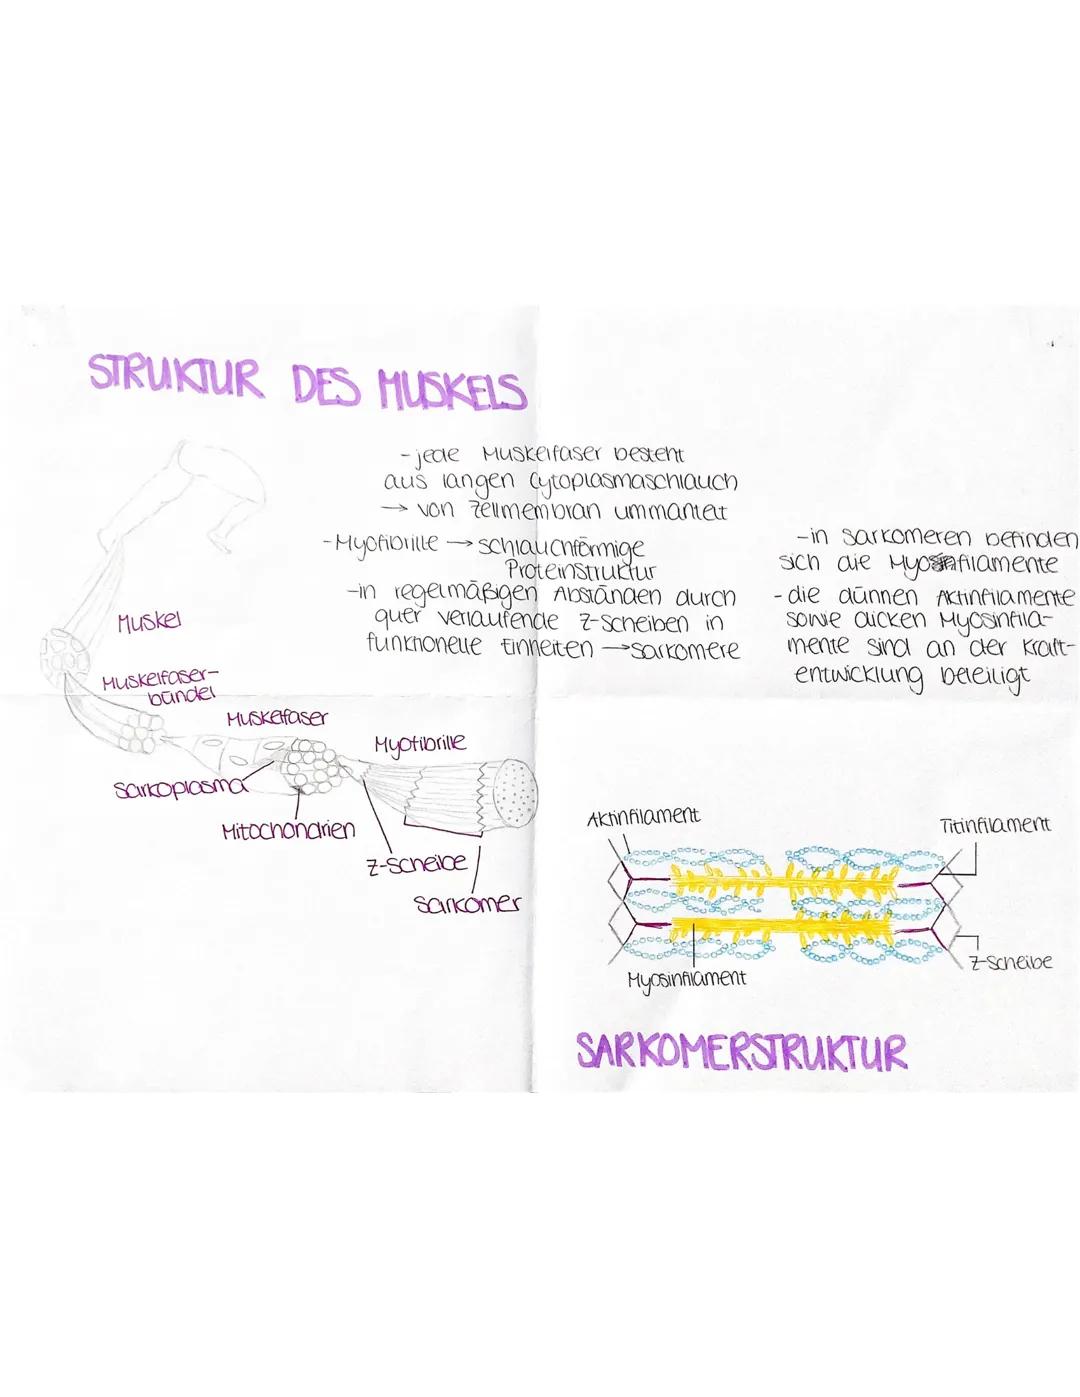 STRUKTUR DES MUSKELS
- jede Muskelfaser besteht
aus langen Cytoplasmaschlauch
→ von Zellmembran ummantelt
- Myofibrille → schlauchförmige
Proteinstruktur
- in regelmäßigen Abständen durch
quer verlaufende Z-Scheiben in
funktionelle Einheiten → Sarkomere
- in Sarkomeren befinden
sich die Myofilamente
- die dünnen Aktinfilamente
sowie dicken Myosinfila-
mente sind an der Kraft-
entwicklung beteiligt
Muskel
Muskelfaser-
bündel
Muskelfaser
Myofibrille
Sarkoplasma
Mitochondrien
Z-Scheibe
Sarkomer
Aktinfilament
Titinfilament
Myosinfilament
Z-Scheibe
SARKOMERSTRUKTUR